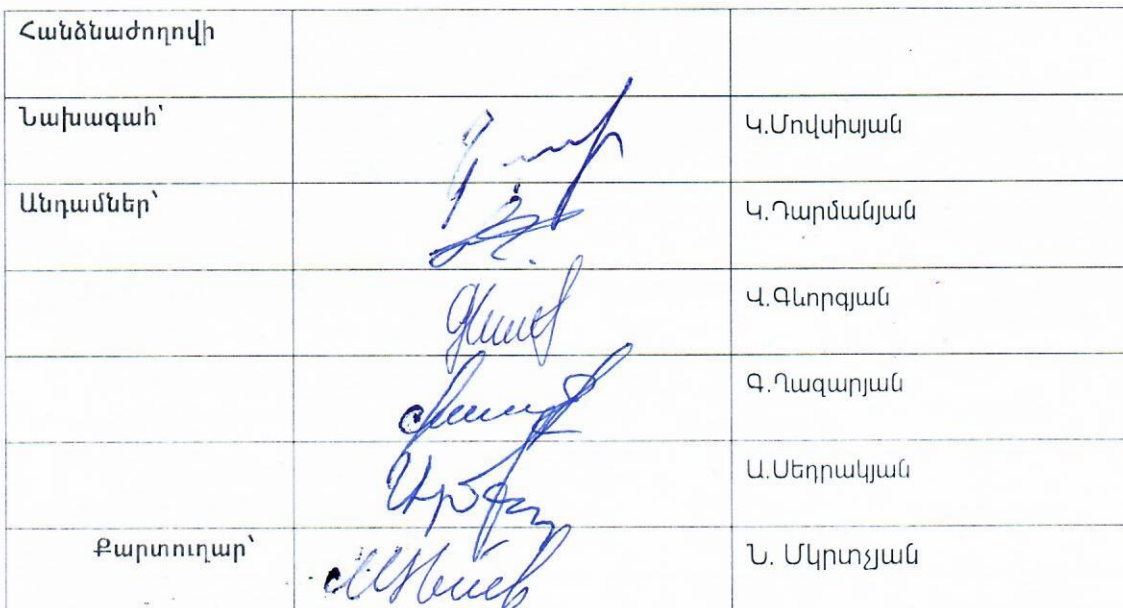 Հանձնաժողովի
Նախագահ՝ Կ.Մովսիսյան
Անդամներ՝ Կ.Դարմանյան
Վ.Գևորգյան
Գ.Ղազարյան
Ա.Սեդրակյան
Քարտուղար՝ Ն. Մկրտչյան